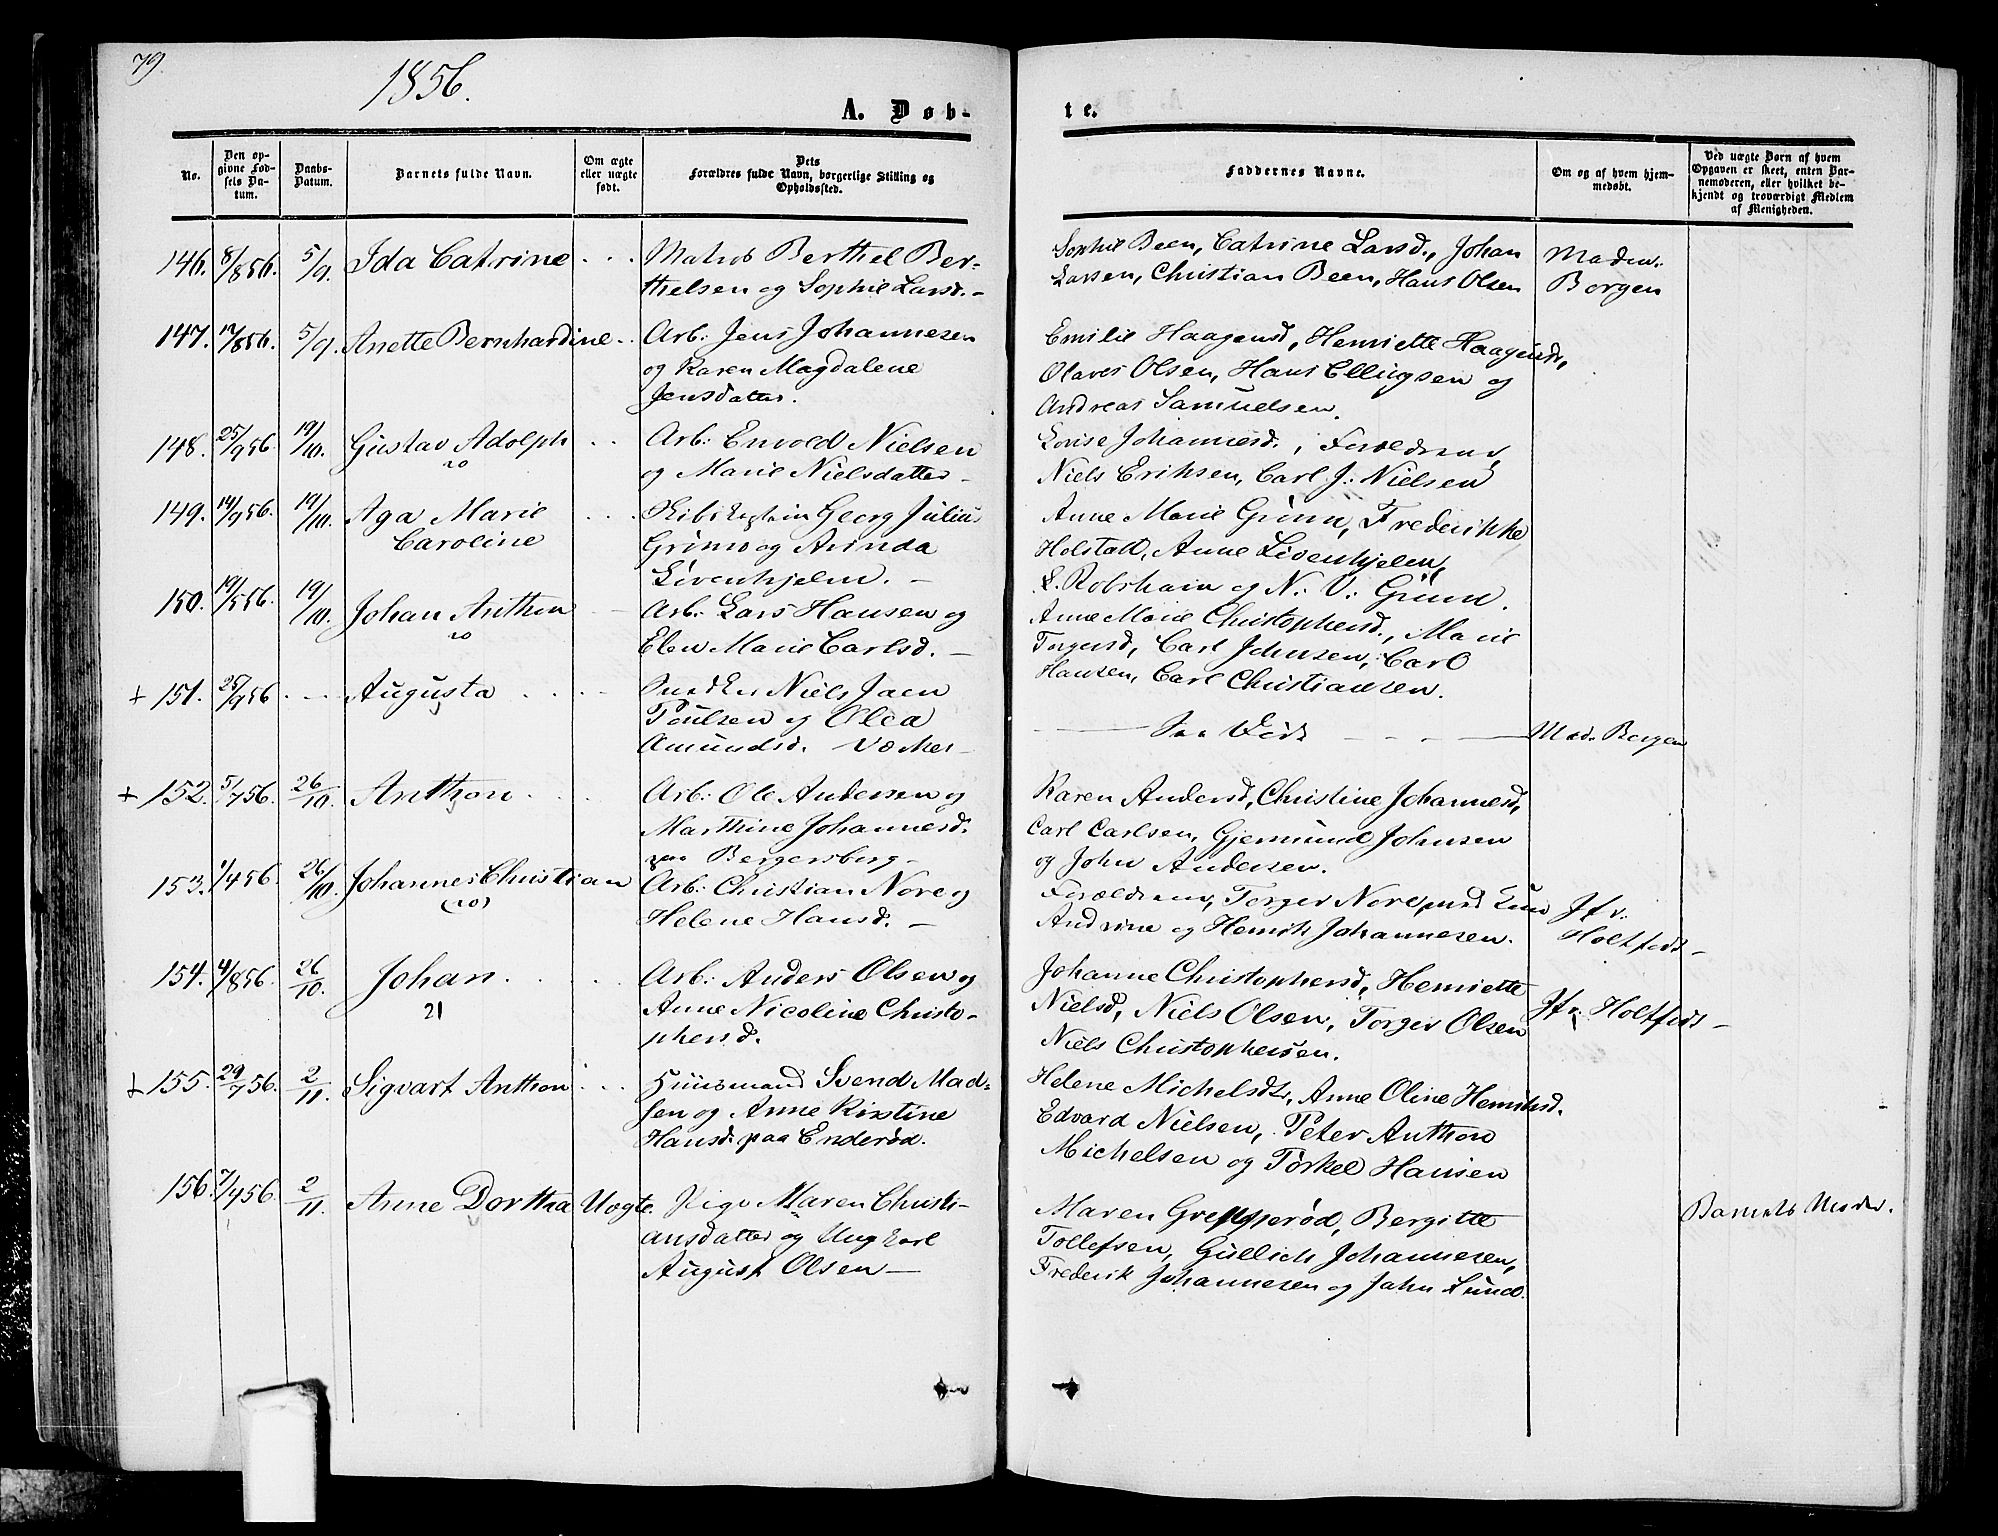 79.
1856.
A. Døb-
te.
No.
Den op-
givne Fød-
sels Da-
tum.
Daabs-
Datum.
Barnets fulde Navn.
Om ægte
eller uægte
født.
Dets
Forældres fulde Navn, borgerlige Stilling og
Opholdssted.
Faddernes Navne.
Om og af hvem hjem-
medøbt.
Ved uægte Børn af hvem
Opgaven er skeet, enten Bar-
nemoderen, eller hvilket be-
kjendt og troværdigt Medlem
af Menigheden.
146. 8/856. 5/9. Ida Catrine Matros Berthel Ber-
thelsen og Sophie Larsd.
Sophie Been, Catrine Larsd., Johan
Larsen, Christian Been, Hans Olsen
Madm.
Borgen
147. 12/856. 5/9. Anette Bernhardine Arb: Jens Johannesen
og Karen Magdalene
Jensdatter.
Emilie Haagensd, Henriette Haagensd,
Olaves Olsen, Hans Ellingsen og
Andreas Samuelsen.
148. 25/956 19/10. Gustav Adolph Arb: Envold Nielsen
20
og Marie Nielsdatter
Lovise Johannesd., Forældrene,
Niels Eriksen, Carl J: Nielsen
149. 14/956. 19/10. Aga Marie
Caroline
Georg Julius
og Avinda
Anne Marie Grünn, Frederikke
Anne
og N: V: Grünn.
150. 19/556. 19/10. Johan Anthon Arb: Lars Hansen og
20
Elen Marie Carlsd.
Anne Marie Christophersd., Marie
Torgersd, Carl Johnsen, Carl
Hansen, Carl Christiansen.
+ 151. 25/956 Augusta Snedker Niels Jacn
Poulsen og Olea
Amundsd.
Mad. Borgen
+ 152. 5/756. 26/10. Anthon Arb: Ole Andersen og
Marthine Johannesd.
paa Bergersberg
Karen Andersd, Christine Johannesd,
Carl Carlsen, Gjermund Johnsen
og John Andersen.
153. 1/456. 26/10. Johannes Christian Arb: Christian Nore og
(20)
Helene Hansd.
Forældrene, Torger Nore,
Andrine og Henrik Johannesen.
Jfr:
Holtfodt
154. 4/856. 26/10. Johan Arb: Anders Olsen og
21
Anne Nicoline Christo-
phersd.
Johanne Christophersd, Henriette
Nielsd, Niels Olsen, Torger Olsen
Niels Christophersen.
Jfr. Holtfodt
+ 155. 29/756. 2/11. Sigvart Anthon Huusmand Svend Mad-
sen og Anne Kirstine
Hansd. paa Enderød.
Helene Michelsdt, Anne Oline Henriksd.
Edvard Nielsen, Peter Anthon
Michelsen og Torkel Hansen
156. 7/956. 2/11. Anne Dorthea Uægte. Pige Maren Christi-
ansdatter og Ungkarl
August Olsen
Maren Bergitte
Tollefsen, Gullich Johannesen,
Frederik Johannesen og John Lund.
Barnets Moder.